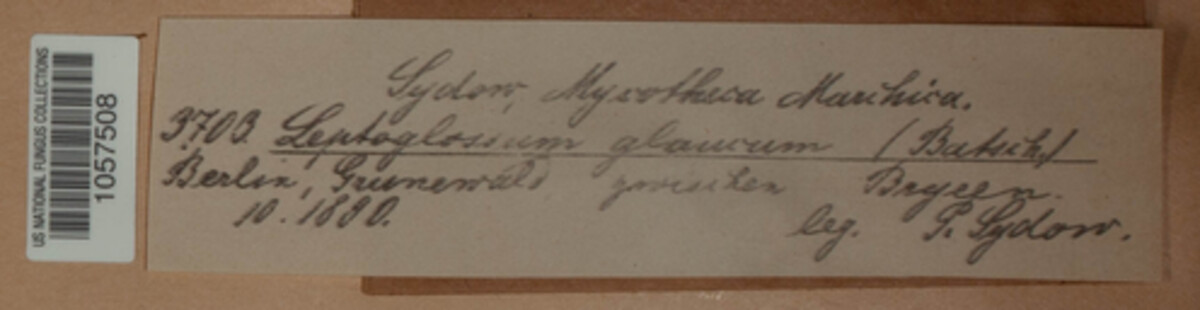 US NATIONAL FUNGUS COLLECTIONS
1057508
Sydow, Mycotheca Marchica.
3703. Leptoglossum glaucum (Batsch.)
Berlin, Grunewald zwischen Bryeen.
10. 1890. leg. P. Sydow.